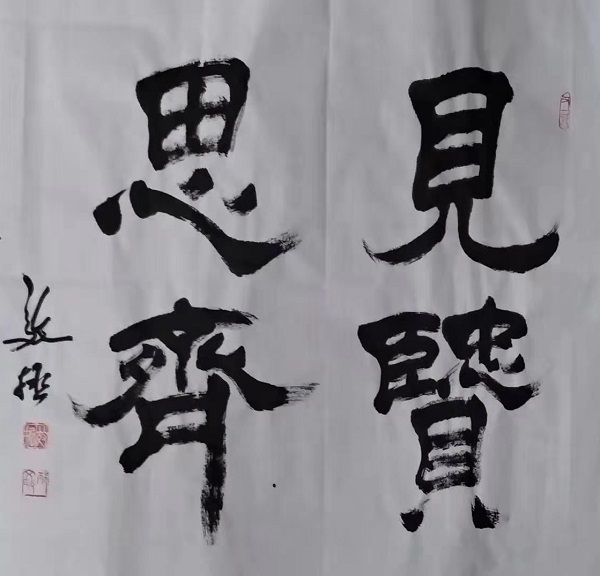 見賢
思齊